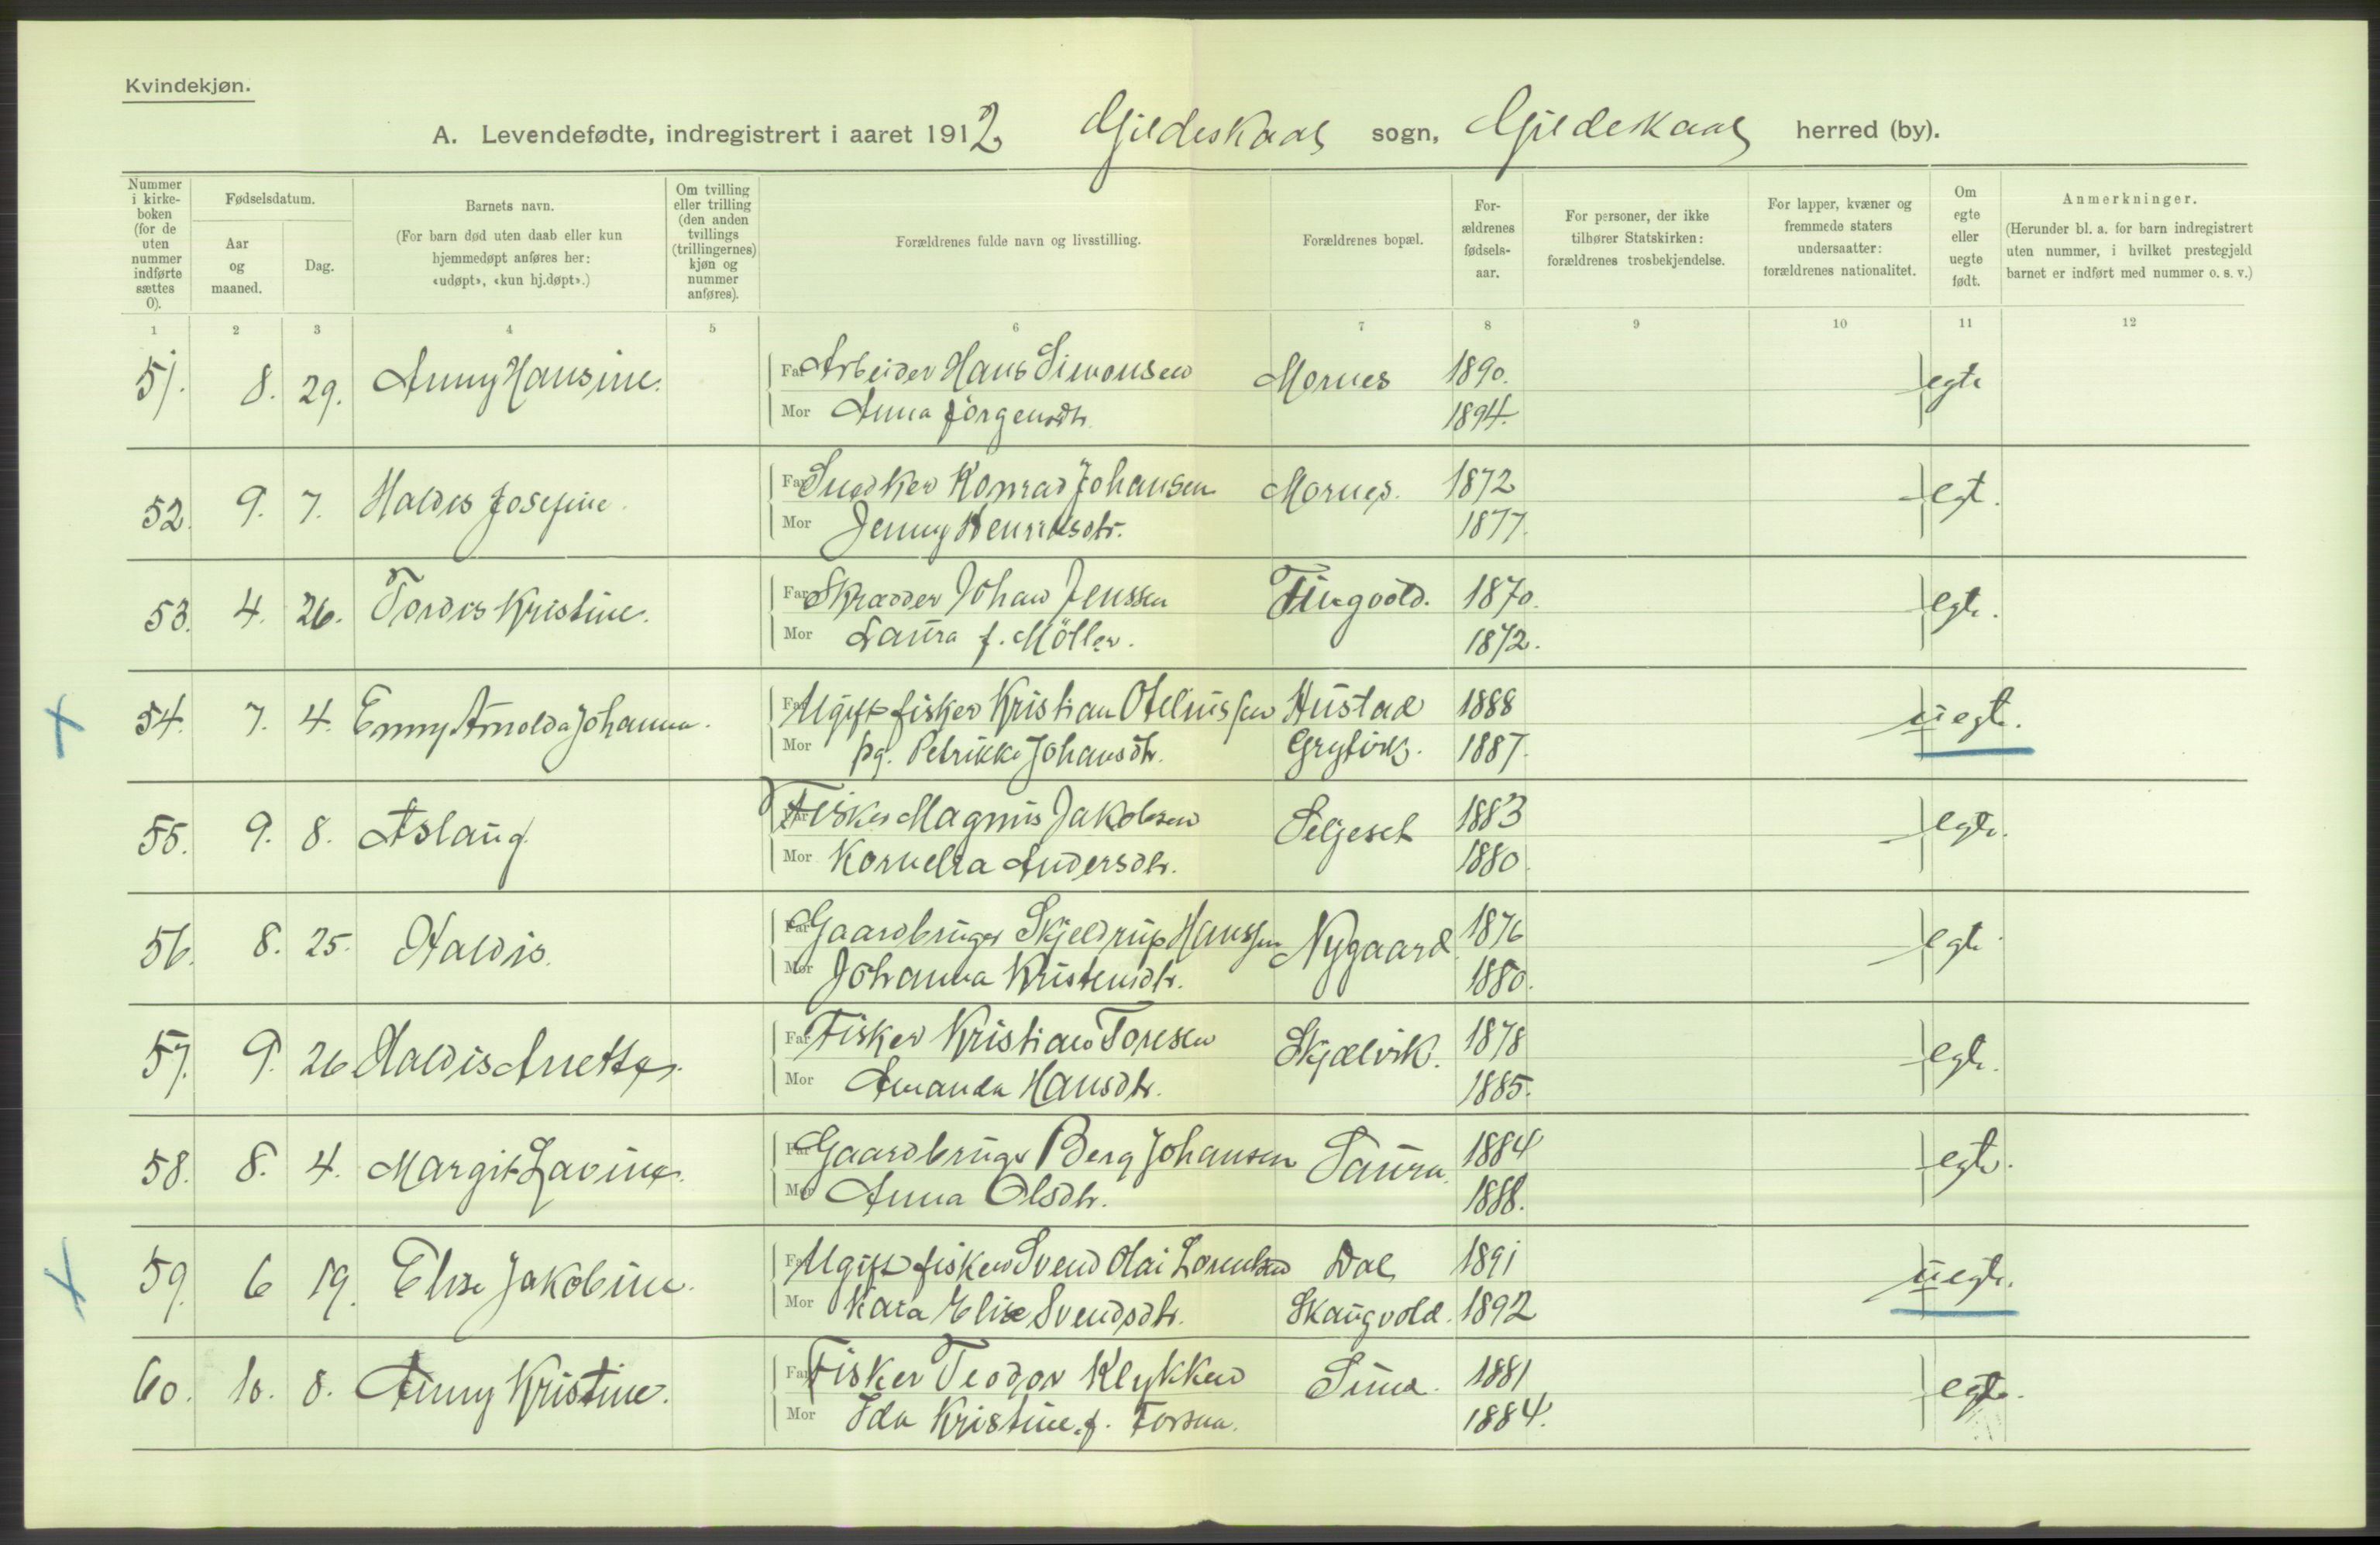 Kvindekjøn.
A. Levendefødte, indregistrert i aaret 1912 Gildeskaal sogn, Gildeskaal herred (by).
Nummer i kirke-boken (for de uten nummer indførte sættes 0).
Fødselsdatum.
Aar og maaned.
Dag.
Barnets navn.
(For barn død uten daab eller kun hjemmedøpt anføres her: «udøpt», «kun hj.døpt».)
Om tvilling eller trilling (den anden tvillings (trillingernes) kjøn og nummer anføres).
Forældrenes fulde navn og livsstilling.
Forældrenes bopæl.
For-ældrenes fødsels-aar.
For personer, der ikke tilhører Statskirken: forældrenes trosbekjendelse.
For lapper, kvæner og fremmede staters undersaatter: forældrenes nationalitet.
Om egte eller uegte født.
Anmerkninger.
(Herunder bl. a. for barn indregistrert uten nummer, i hvilket prestegjeld barnet er indført med nummer o. s. v.)
1 2 3 4 5 6 7 8 9 10 11 12
51. 8. 29. Anny Hansine. Far Arbeider Hans Simonsen Mornes 1890. egte
Mor Anna Jørgensdtr. 1894.
52. 9. 7. Haldis Josefine. Far Snedker Konrad Johansen Mornes. 1872 egt.
Mor Jenny Henriksdtr. 1877.
53. 4. 26. Tordis Kristine. Far Skrædder Johan Jenssen Tingvold. 1870. egte.
Mor Laura f. Möller. 1872.
54. 7. 4. Emmy Arnolda Johanna. Far Ugift fisker Kristian Oteliussen Hustad 1888 uegte.
Mor pg. Petrikke Johansdtr. Grytvik. 1887.
55. 9. 8. Aslaug. Far Fisker Magnus Jakobsen Seljeset 1883 egte.
Mor Kornelia Andersdtr. 1880.
56. 8. 25. Haldis. Far Gaardbruger Skjeldrup Hanssen Nygaard 1876 egte
Mor Johanna Kristensdtr. 1880.
57. 9. 26 Haldis Anette. Far Fisker Kristian Toresen Skjælvik. 1878 egte.
Mor Amanda Hansdtr. 1885.
58. 8. 4. Margit Lavine. Far Gaardbruger Berg Johansen Saura. 1884 egte.
Mor Anna Olsdtr. 1888.
59. 6 19. Elise Jakobine. Far Ugift fisker Svend Olai Lorentsen Dal 1891 uegte.
Mor Kaia Elise Svendsdtr. Skaugvold. 1892
60. 10. 8. Anny Kristine. Far Fisker Teodor Klykken Sund. 1881 egte.
Mor Ida Kristine f. Forsaa. 1884.